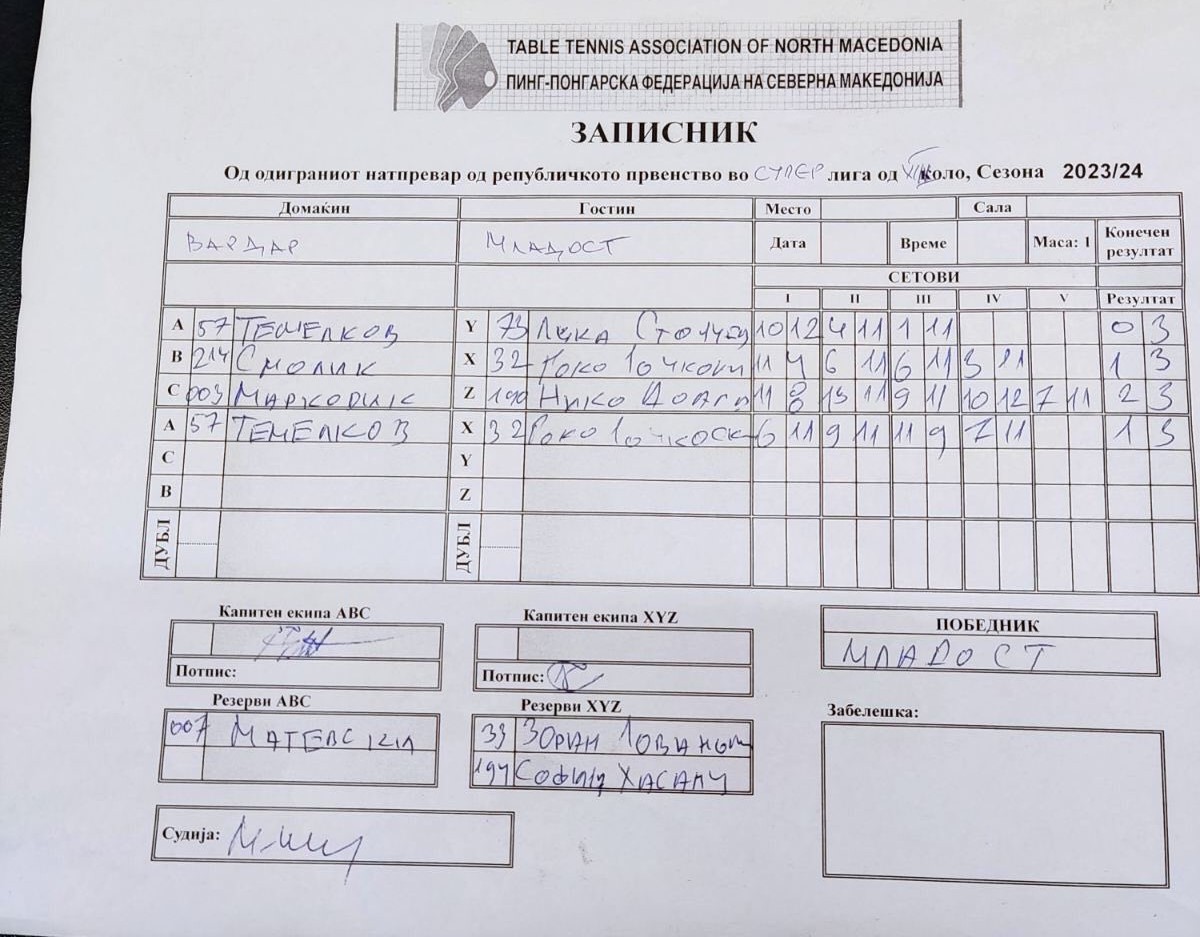 TABLE TENNIS ASSOCIATION OF NORTH MACEDONIA
ПИНГ-ПОНГАРСКА ФЕДЕРАЦИЈА НА СЕВЕРНА МАКЕДОНИЈА
ЗАПИСНИК
Од одиграниот натпревар од републичкото првенство во СУПЕР лига од коло, Сезона 2023/24
Домаќин Гостин Место Сала
ВАРДАР МЛАДОСТ Дата Време Маса: 1 Конечен резултат
СЕТОВИ
I II III IV V Резултат
A 57 ТЕМЕЛКОВ Y 73 Лука 10 12 4 11 1 11 0 3
B 214 СМОЛИК X 32 11 4 6 11 6 11 3 11 1 3
C 003 Z 190 Нико 11 8 13 11 9 11 10 12 7 11 2 3
A 57 ТЕМЕЛКОВ X 32 6 11 9 11 11 9 7 11 1 3
C Y
B Z
ДУБЛ ДУБЛ
Капитен екипа ABC Капитен екипа XYZ ПОБЕДНИК
МЛАДОСТ
Потпис: Потпис:
Резерви ABC Резерви XYZ Забелешка:
007 33 ЗОРАН
194
Судија: